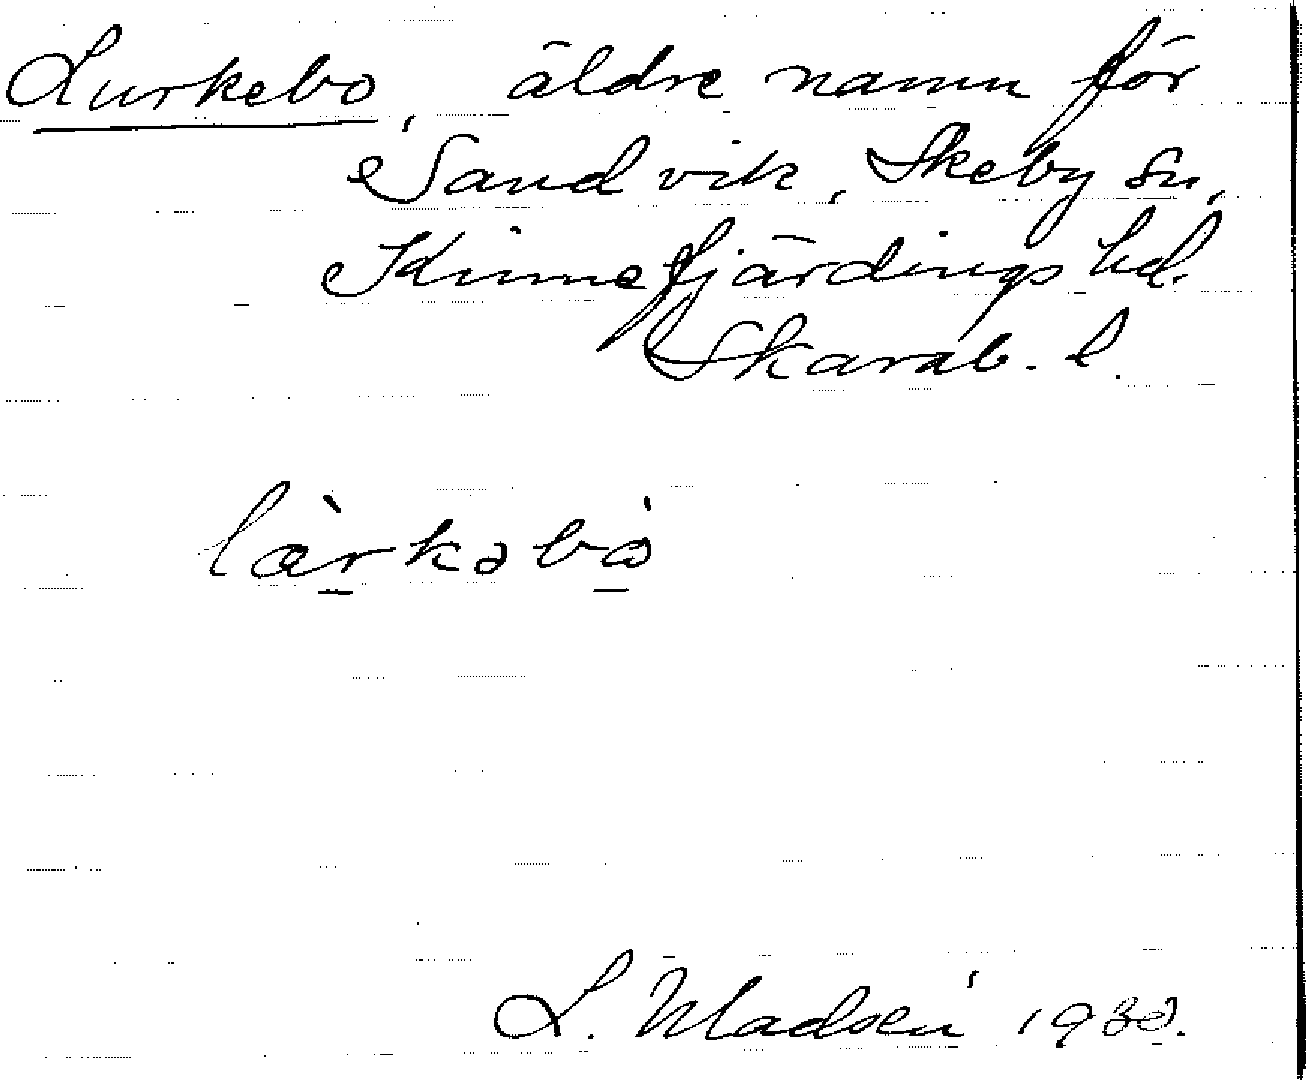 Lurkebo, äldre namn för
Sandvik, Skeby sn,
Kinnefjärdings hd.
Skarab. l.
L. Madsén 1930.